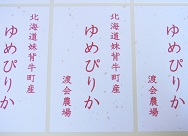 北海道妹背牛町産
ゆめぴりか
渡会農場
北海道妹背牛町産
ゆめぴりか
渡会農場
ゆめぴりか
渡会農場